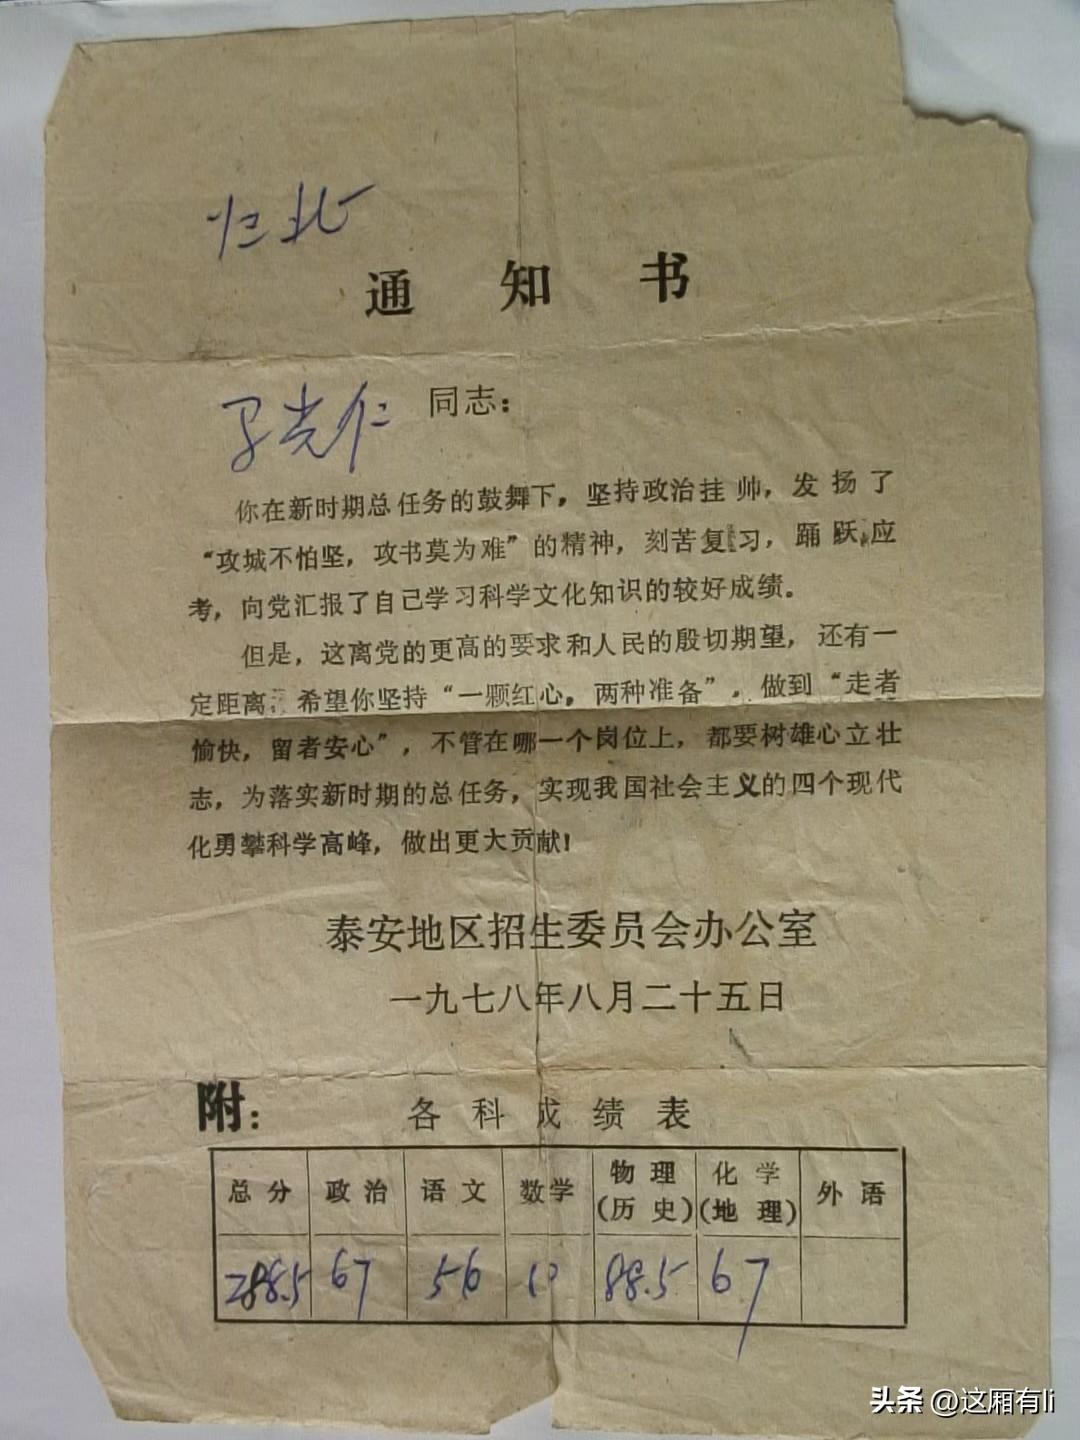 归北
通知书
光仁 同志：
你在新时期总任务的鼓舞下，坚持政治挂帅，发扬了
“攻城不怕坚，攻书莫为难”的精神，刻苦复习，踊跃应
考，向党汇报了自己学习科学文化知识的较好成绩。
但是，这离党的更高的要求和人民的殷切期望，还有一
定距离，希望你坚持“一颗红心，两种准备”，做到“走者
愉快，留者安心”，不管在哪一个岗位上，都要树雄心立壮
志，为落实新时期的总任务，实现我国社会主义的四个现代
化勇攀科学高峰，做出更大贡献！
泰安地区招生委员会办公室
一九七八年八月二十五日
附：各科成绩表
总分 政治 语文 数学 物理（历史） 化学（地理） 外语
288.5 67 56 10 88.5 67
头条 @这厢有li